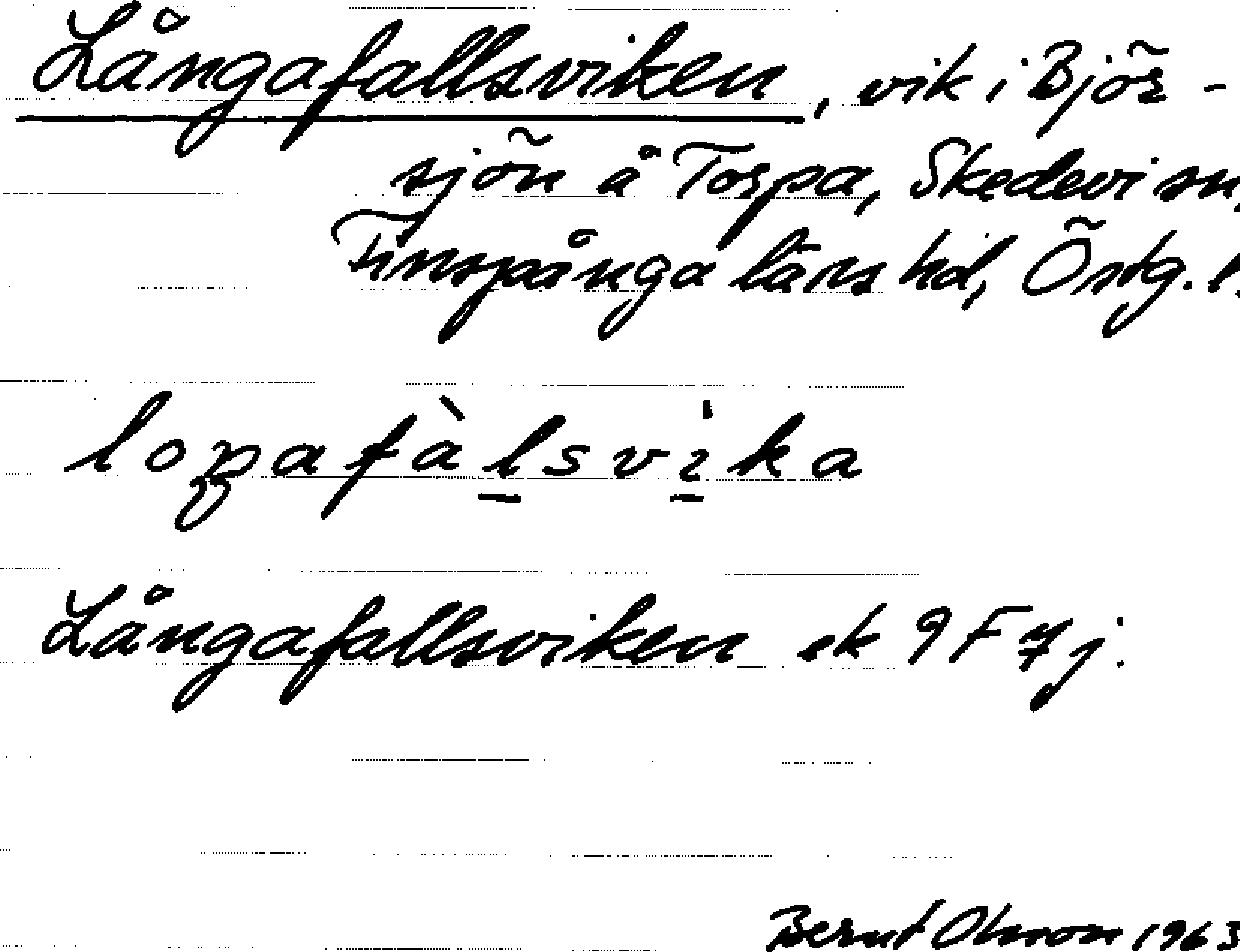 Långafallsviken, vik i Björ-
sjön å Torpa, Skedevi sn,
Finspånga läns hd, Östg. l.
loŋafàlsvika
Långafallsviken ek 9F7j.
Bernt Olsson 1963